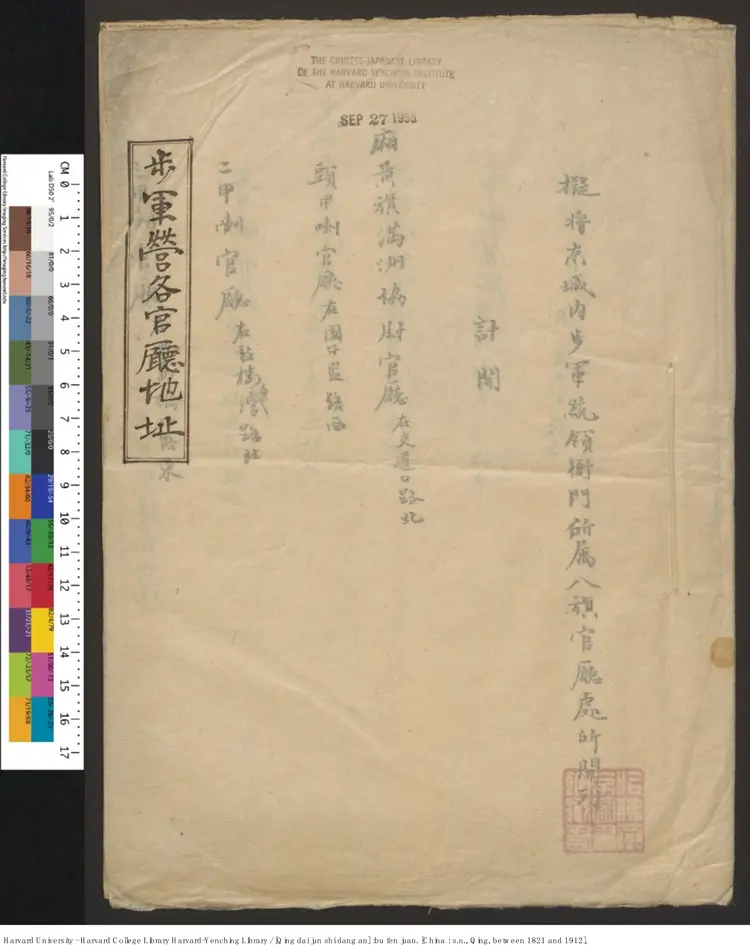 THE CHINESE-JAPANESE LIBRARY
OF THE HARVARD-YENCHING INSTITUTE
AT HARVARD UNIVERSITY
SEP 27 1955
將京城内步軍統領衙門所属八旗官廳處所開列
計開
廂黄旗滿洲協尉官廳 在交道口路北
頭甲喇官廳 在國子監路西
二甲喇官廳 在鼓樓灣路北
步軍營各官廳地址
CM 0 1 2 3 4 5 6 7 8 9 10 11 12 13 14 15 16 17
Harvard University - Harvard College Library Harvard-Yenching Library / [Qing dai jun shi dang an] : bu fen juan. [China : s.n., Qing, between 1821 and 1912].